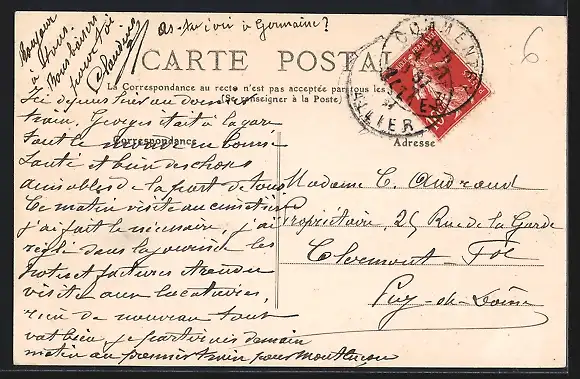 Bonjour
à tous.
Nous baisers
pour toi
Claudius
As-tu écrit à Germaine?
6
CARTE POSTALE
La Correspondance au recto n'est pas acceptée par tous les
(Se renseigner à la Poste)
COMMENTRY
ALLIER
Correspondance
Adresse
Ici depuis hier au dernier
train. Georges était à la gare
tout le monde en bonne
santé et bien des choses
aimables de la part de tous
Ce matin visite au cimetière
j'ai fait le nécessaire, j'ai
réglé dans la journée les
notes et factures et rendu
visite aux locataires,
rien de nouveau tout
va bien, je partirai demain
matin au premier train pour Montluçon
Madame C. Audraud
Propriétaire, 25 Rue de la Garde
Clermont-Fd
Puy-de-Dôme